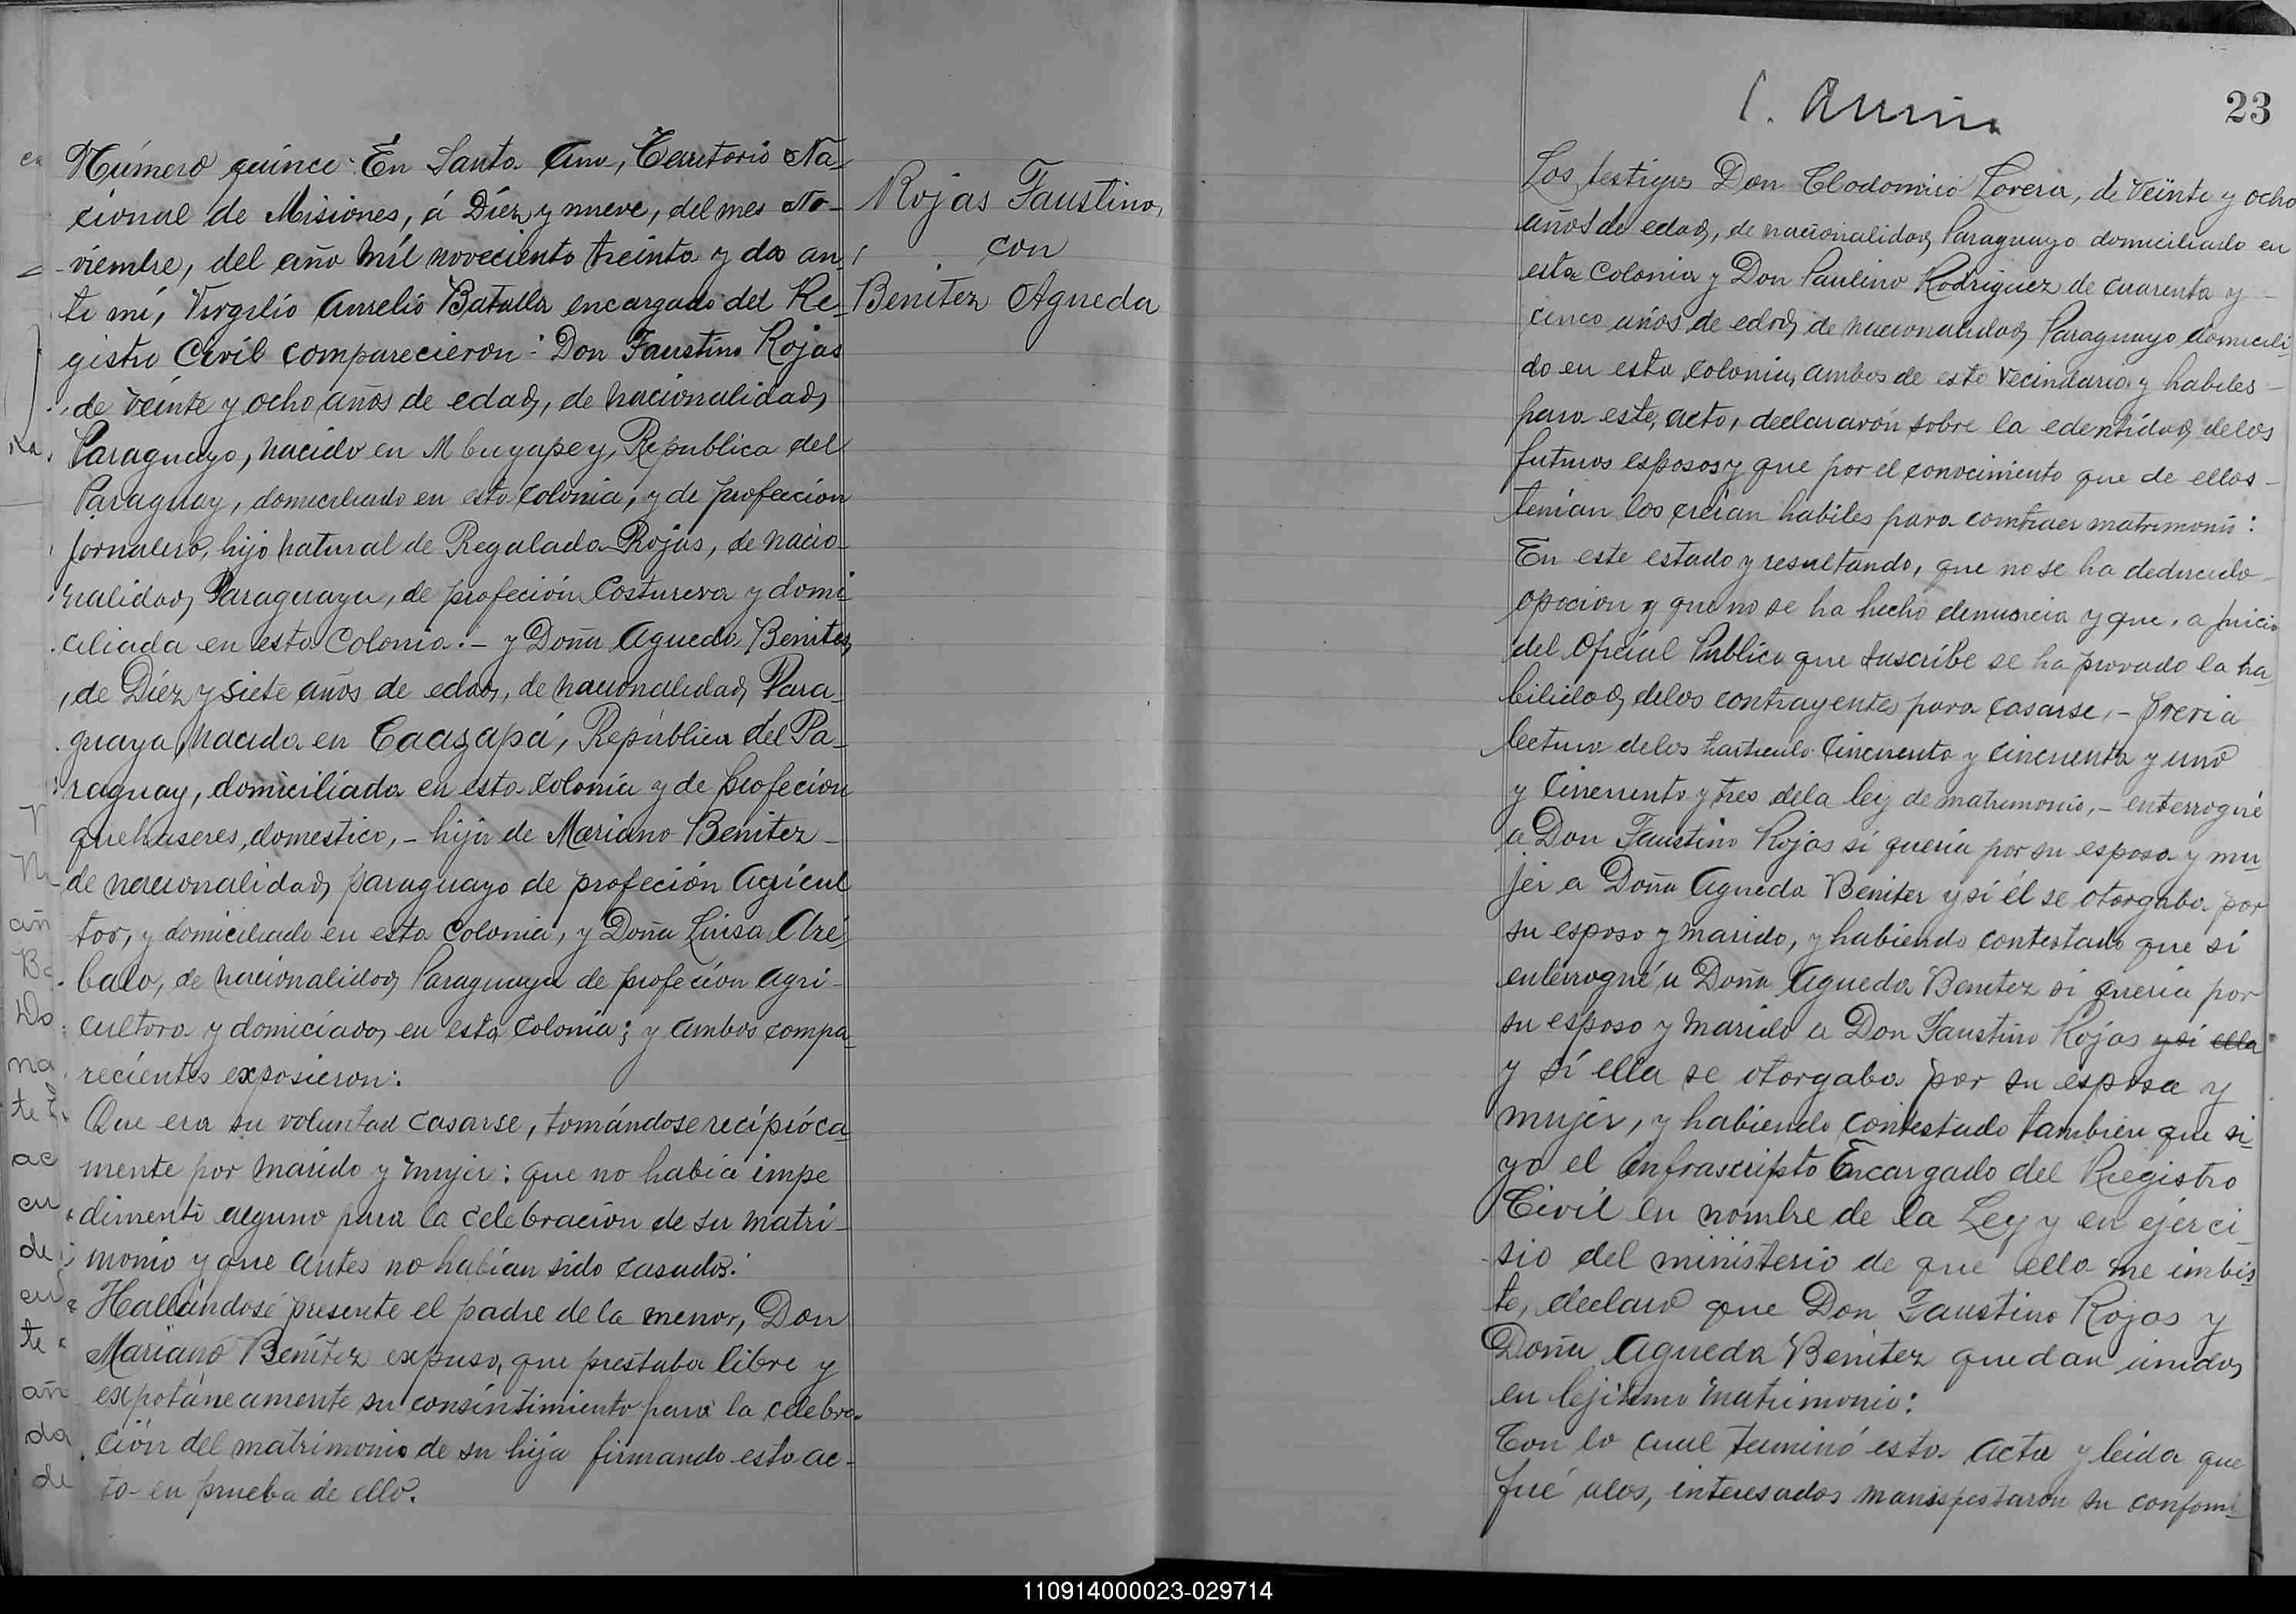 Número quince: En Santa Ana, Territorio Na-
cional de Misiones, á Diéz y nueve, del mes No-
viembre, del año mil noveciento treinta y dos an-
te mí, Virgilio Aurelio Batalla encargado del Re-
gistro Civil comparecieron: Don Faustino Rojas
de veinte y ocho años de edad, de nacionalidad,
Paraguayo, nacido en Mbuyapey, Republica del
Paraguay, domiciliado en esta colonia, y de profecion
Jornalero, hijo natural de Regalada Rojas, de nacio-
nalidad, Paraguaya, de profeción Costurera y domi-
ciliada en esta Colonia:- y Doña Agueda Benites,
de Diéz y siete años de edad, de nacionalidad, Para-
guaya, nacida en Caazapá, República del Pa-
raguay, domiciliada en esta colonia y de profecion
quehaseres, domestico,- hija de Mariano Benitez-
de nacionalidad, paraguayo de profeción Agricul
tor, y domiciliado en esta Colonia, y Doña Luisa Aré-
balo, de nacionalidad, Paraguaya de profecion agri-
cultora y domiciada, en esta colonia; y ambos compa-
recientes exposieron:
Que era su voluntad casarse, tomándose recípróca-
mente por marido y mujer: que no había impe
dimento alguno para la celebracion de su matri-
monio y que antes no habían sido casados:
Hallándosé presente el padre de la menor, Don
Mariano Benítez expuso, que prestaba libre y
expotáneamente su consintimiento para la celebra-
ción del matrimonio de su hija firmando esto ac-
to en prueba de ello.
Rojas Faustino,
con
Benitez Agueda
23
Los testigos Don Clodomiro Lovera, de veinte y ocho
años de edad, de nacionalidad, Paraguayo domiciliado en
esta Colonia y Don Paulino Rodriguez de cuarenta y-
cinco años de edad, de nacionalidad, Paraguayo domicili-
do en esta colonia, ambos de este vecindario y habiles-
para este, acto, declararón sobre la edentidad, delos
futuros esposos y que por el conocimiento que de ellos-
tenían los creían habiles para comtraer matrimonio:
En este estado y resultando, que no se ha deducido-
opocion y que no se ha hecho denuncia y que, a juicio
del Oficial Publico que suscribe se ha provado la ha-
bilidad, delos contrayentes para casarse,- previa
lectura delos hartículo Cincuenta y cincuenta y uno
y Cincuenta y tres dela ley de matrimonio,- enterrogué
a Don Faustino Rojas si quería por su esposa y mu-
jer a Doña Agueda Beniter y si él se otorgaba por
su esposo y marido, y habiendo contestado que si
enterrogué a Doña Agueda Benitez si queria por
su esposo y marido a Don Faustino Rojas y si ella
y sí ella se otorgaba por su esposa y
mujer, y habiendo contestado tambien que si-
yo el infrascripto Encargado del Registro
Civil en nombre de la Ley y en ejerci-
sio del ministerio de que ella me imbis-
te, declaro que Don Faustino Rojas y
Doña Agueda Benitez quedan unidos,
en lejitimo matrimonio:
Con lo cual terminó esta acta y leida que
fué alos, interesados manispestaron su confomi-
110914000023-029714